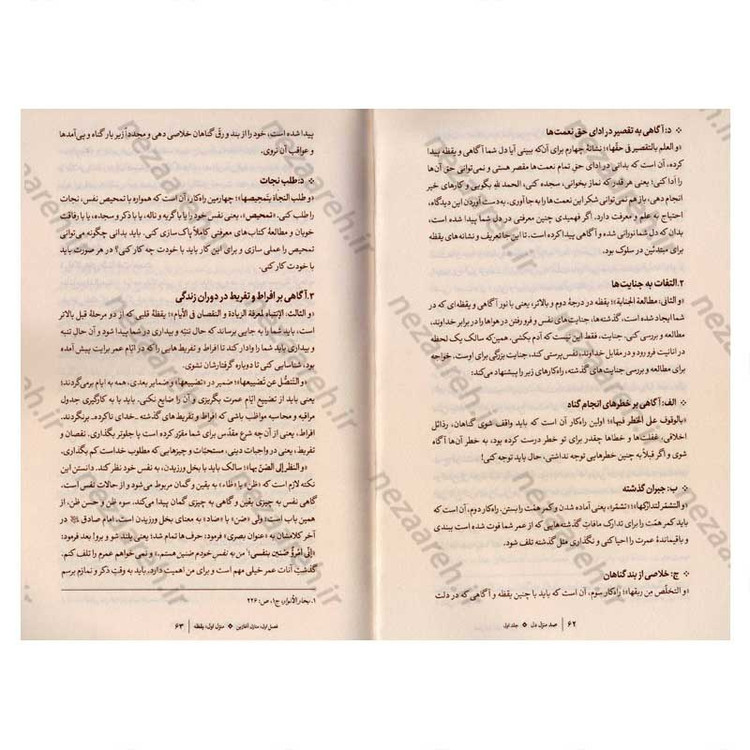 د: آگاهی به تقصیر در ادای حق نعمت‌ها
«و العلم بالتقصیر فی حقّها»؛ نشانهٔ چهارم برای آن‌که ببینی آیا دل شما آگاهی و یقظه پیدا
کرده، آن است که بدانی در ادای حق تمام نعمت‌ها مقصر هستی و نمی‌توانی حق آن‌ها
را ادا کنی؛ یعنی هر قدر که نماز بخوانی، سجده کنی، الحمد لله بگویی و کارهای خیر
انجام دهی، باز هم نمی‌توانی شکر این نعمت‌ها را به‌جا آوری. به‌دست آوردن این دیدگاه،
احتیاج به علم و معرفت دارد. اگر فهمیدی چنین معرفتی در دل شما پیدا شده است،
بدان که دل شما نورانی شده و آگاهی پیدا کرده است. تا این‌جا تعریف و نشانه‌های یقظه
برای مبتدئین در سلوک بود.
۲. التفات به جنایت‌ها
«و الثانی: مطالعة الجنایة»؛ یقظه در درجهٔ دوم و بالاتر، یعنی با نور آگاهی و یقظه‌ای که در
شما ایجاد شده است، گذشته‌ها، جنایت‌های نفس و فرو رفتن در هواها را در برابر خداوند،
مطالعه و بررسی کنی. جنایت، فقط این نیست که آدم بکشی، همین‌که سالک یک لحظه
در انانیت فرو رود و در مقابل خداوند، نفس‌پرستی کند، جنایت بزرگی برای اوست. خواجه
برای مطالعه و بررسی جنایت‌های گذشته، راه‌کارهای زیر را پیشنهاد می‌کند:
الف: آگاهی بر خطرهای انجام گناه
«بالوقوف علی الخطر فیها»؛ اولین راه‌کار آن است که باید واقف شوی گناهان، رذائل
اخلاقی، غفلت‌ها و خطاها چقدر برای تو خطر درست کرده بود، به خطر آن‌ها آگاه
شوی و اگر قبلاً به چنین خطرهایی توجه نداشتی، حال باید توجه کنی!
ب: جبران گذشته
«و التشمّر لتدارکها»؛ «تشمّر»، یعنی آماده شدن و کمر همّت را بستن. راه‌کار دوم، آن است که
باید کمر همّت را برای تدارک مافات گذشته‌هایی که از عمر شما فوت شده است ببندی
و باقیماندهٔ عمرت را احیا کنی و نگذاری مثل گذشته تلف شود.
ج: خلاصی از بند گناهان
«و التخلّص مِن ربقها»؛ راه‌کار سوم، آن است که باید با چنین یقظه و آگاهی که در دلت
۶۲ | صد منزل دل ❖ جلد اول
پیدا شده است، خود را از بند و رقّ گناهان خلاصی دهی و مجدداً زیر بار گناه و پی‌آمدها
و عواقب آن نروی.
د: طلب نجات
«و طلب النجاة بتمحیصها»؛ چهارمین راه‌کار، آن است که همواره با تمحیص نفس، نجات
را طلب کنی. «تمحیص»، یعنی نفس خود را با گریه و ناله، یا با ذکر و سجده، یا با رفاقت
خوبان و مطالعهٔ کتاب‌های معرفتی کاملاً پاک‌سازی کنی. باید بدانی چگونه می‌توانی
تمحیص را عملی سازی و برای این کار باید با خودت چه کار کنی؟ در هر صورت باید
با خودت کار کنی.
۳. آگاهی بر افراط و تفریط در دوران زندگی
«و الثالث: الإنتباه لمعرفة الزیادة و النقصان فی الأیام»؛ یقظهٔ قلبی که از دو مرحلهٔ قبل بالاتر
است، باید شما را به جایی برساند که حال تنبّه و بیداری در شما پیدا شود و آن حال تنبّه
و بیداری باید شما را وادار کند تا افراط و تفریط‌هایی را که در ایّام عمر برایت پیش آمده
بود، شناسایی کنی تا دوباره گرفتارشان نشوی.
«و التنصّل عن تضییعها»؛ ضمیر در «تضییعها» و ضمایر بعدی، همه به ایام برمی‌گردند؛
یعنی باید از تضییع ایّام عمرت بگریزی و آن را ضایع نکنی. باید با به کارگیری جدول
مراقبه و محاسبه مواظب باشی که افراط و تفریط‌های گذشته ـ خدای ناکرده ـ برنگردند.
افراط، یعنی از آن‌چه شرع مقدّس برای شما مقرّر کرده است پا جلوتر بگذاری. نقصان و
تفریط، یعنی در واجبات دینی، مستحبّات و چیزهایی که مطلوب خداست کم بگذاری.
«و النظر إلی الضنّ بها»؛ سالک باید با بخل ورزیدن، به نفس خود نظر کند. دانستن این
نکته لازم است که «ظن» با «ظاء» با یقین و گمان مربوط می‌شود و از حالات نفس است.
گاهی نفس به چیزی یقین و گاهی به چیزی گمان پیدا می‌کند. سوء ظن و حسن ظن، از
همین باب است؛ ولی «ضن» با «ضاد» به معنای بخل ورزیدن است. امام صادق در
آخر کلامشان به «عنوان بصری» فرمود: حرف‌ها تمام شد؛ یعنی بلند شو و برو! بعد فرمود:
«إنّی امرُؤٌ ضَنینٌ بنفسی؛ من به نفس خودم ضنین هستم.» و نمی‌خواهم عمرم را تلف کنم.
گذشت آنات عمر خیلی مهم است و برای من اهمیت دارد. باید به وقتِ ذکر و نمازم برسم
۱. بحار الأنوار، ج۱، ص: ۲۲۶
فصل اول: منازل آغازین ❖ منزل اول: یقظه | ۶۳
nezaareh.ir